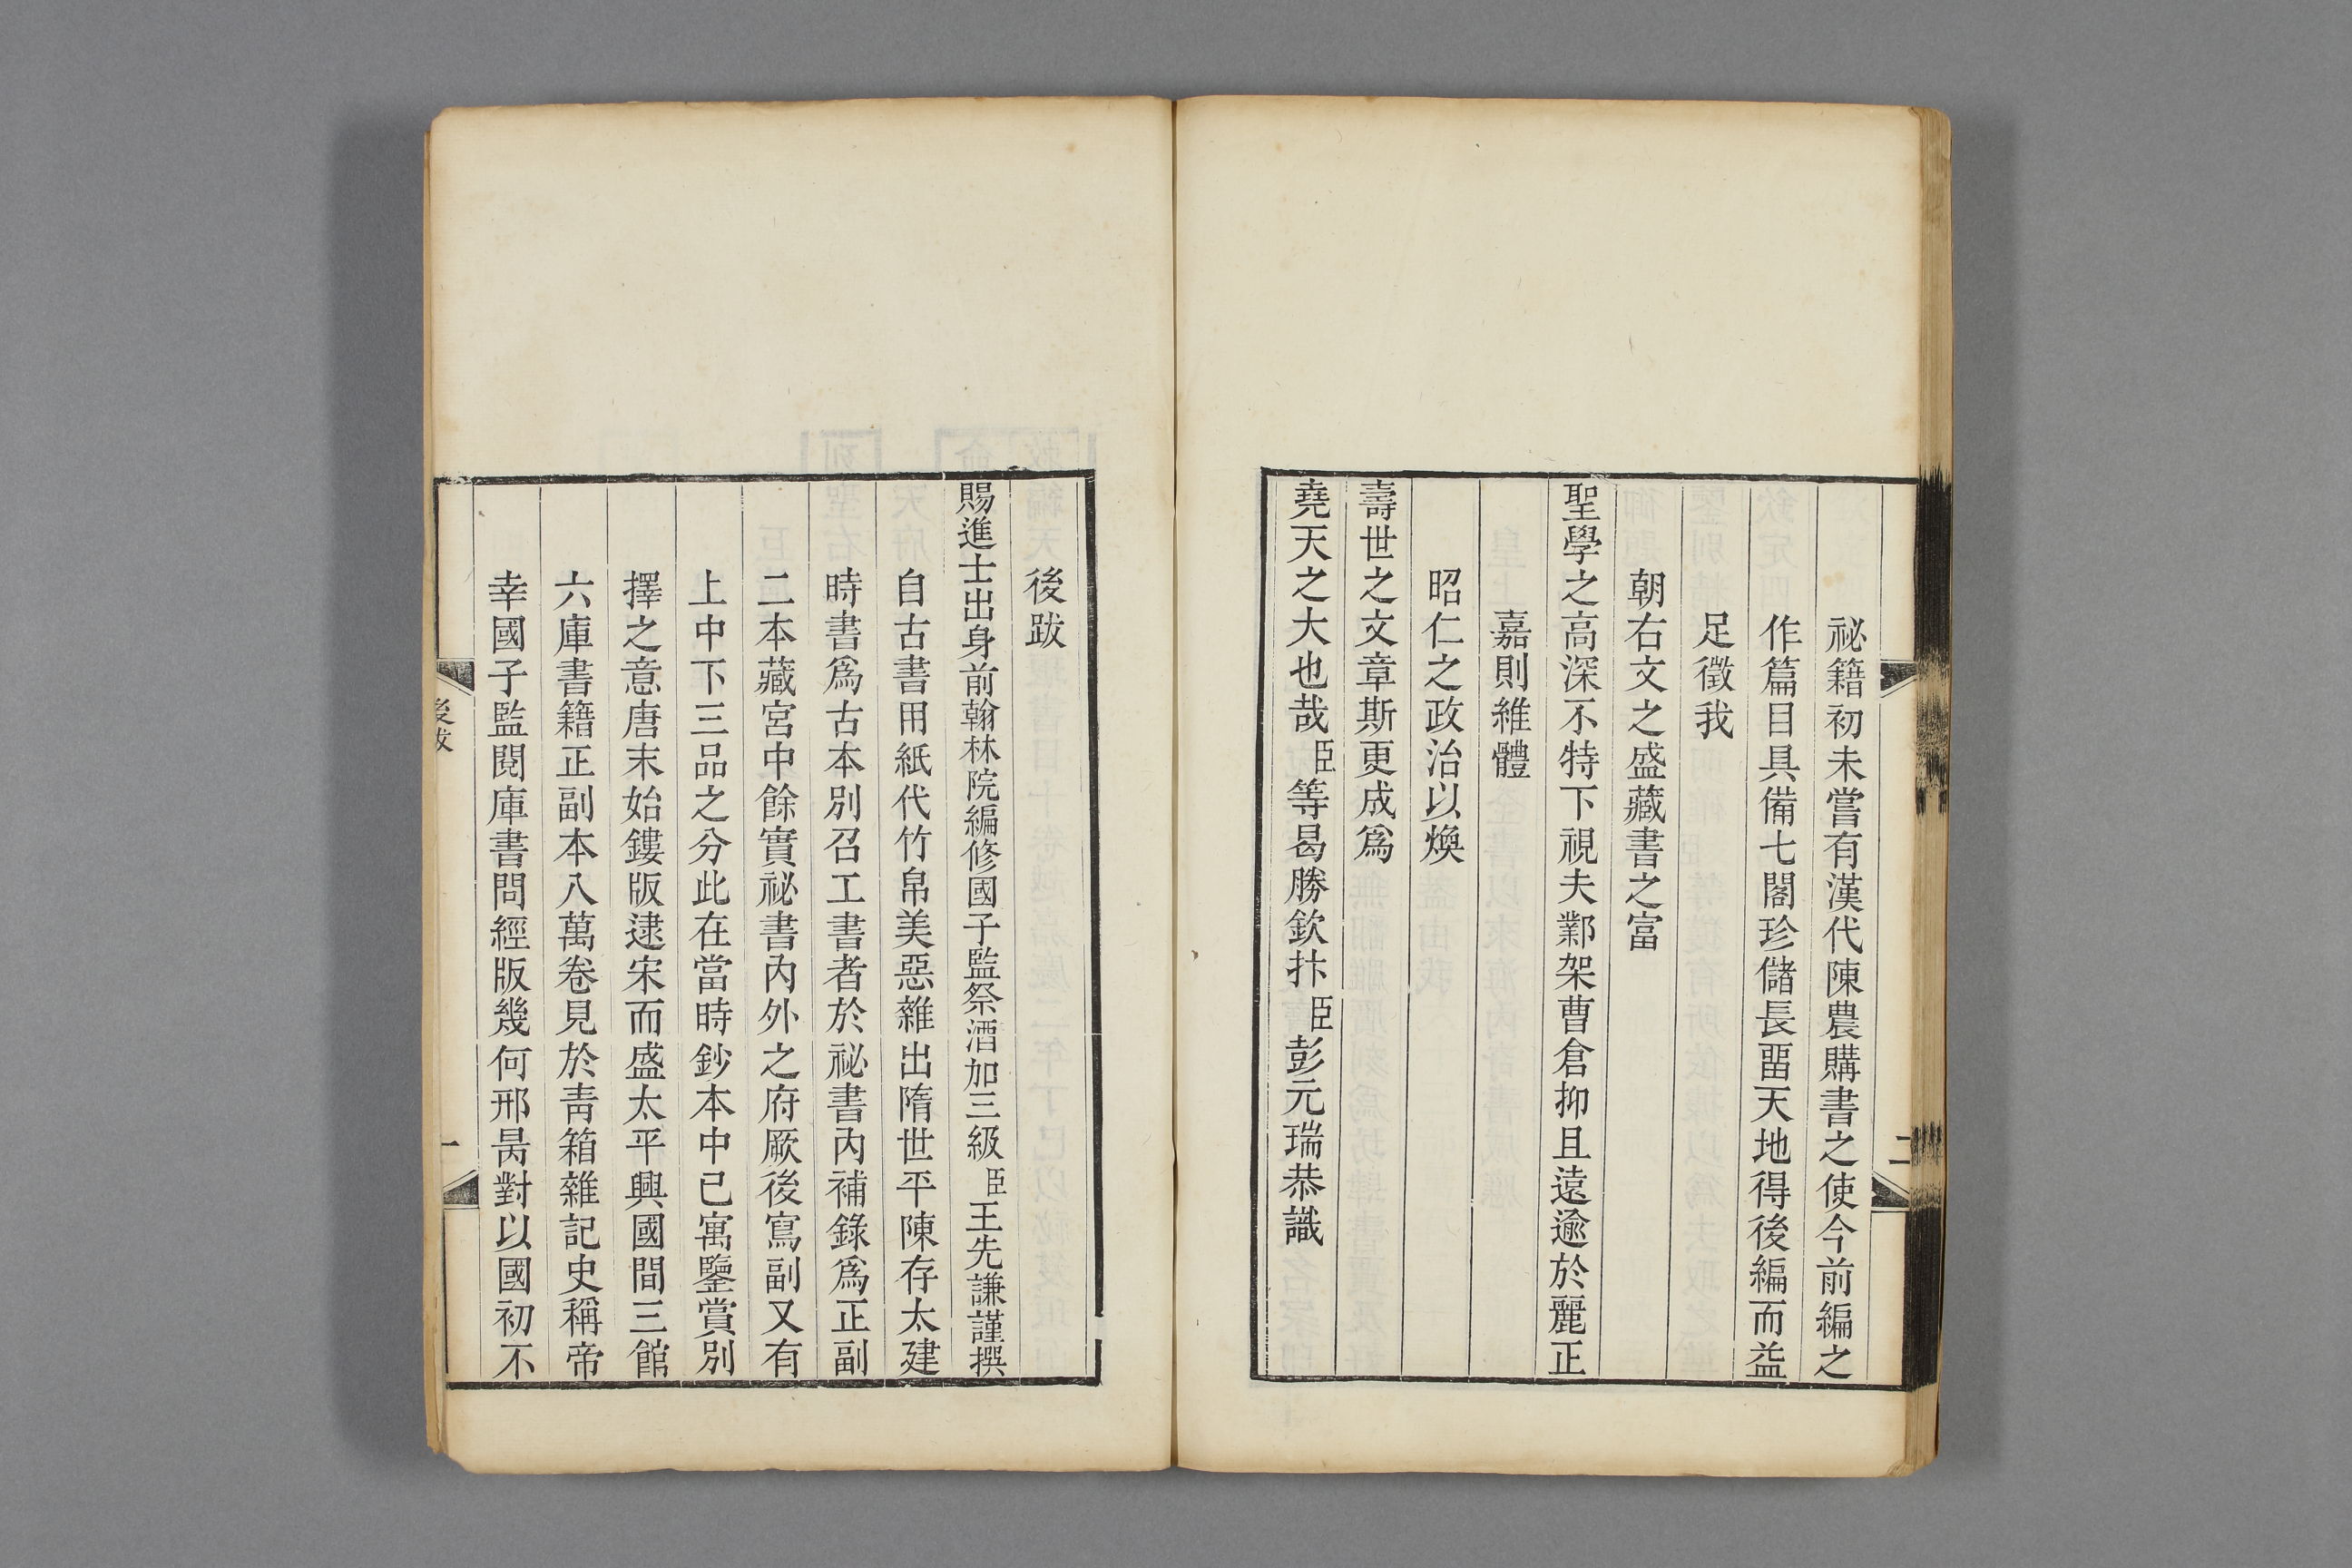 祕籍初未嘗有漢代陳農購書之使今前編之
作篇目具備七閣珍儲長畱天地得後編而益
足徵我
朝右文之盛藏書之富
聖學之高深不特下視夫鄴架曹倉抑且遠逾於麗正
嘉則維體
昭仁之政治以煥
壽世之文章斯更成爲
堯天之大也哉臣等曷勝欽抃臣彭元瑞恭識
二
後跋
賜進士出身前翰林院編修國子監祭酒加三級臣王先謙謹撰
自古書用紙代竹帛美惡雜出隋世平陳存太建
時書爲古本別召工書者於祕書內補錄爲正副
二本藏宮中餘實祕書內外之府厥後寫副又有
上中下三品之分此在當時鈔本中已寓鑒賞別
擇之意唐末始鏤版逮宋而盛太平興國間三館
六庫書籍正副本八萬卷見於靑箱雜記史稱帝
幸國子監閱庫書問經版幾何邢昺對以國初不
後跋
一